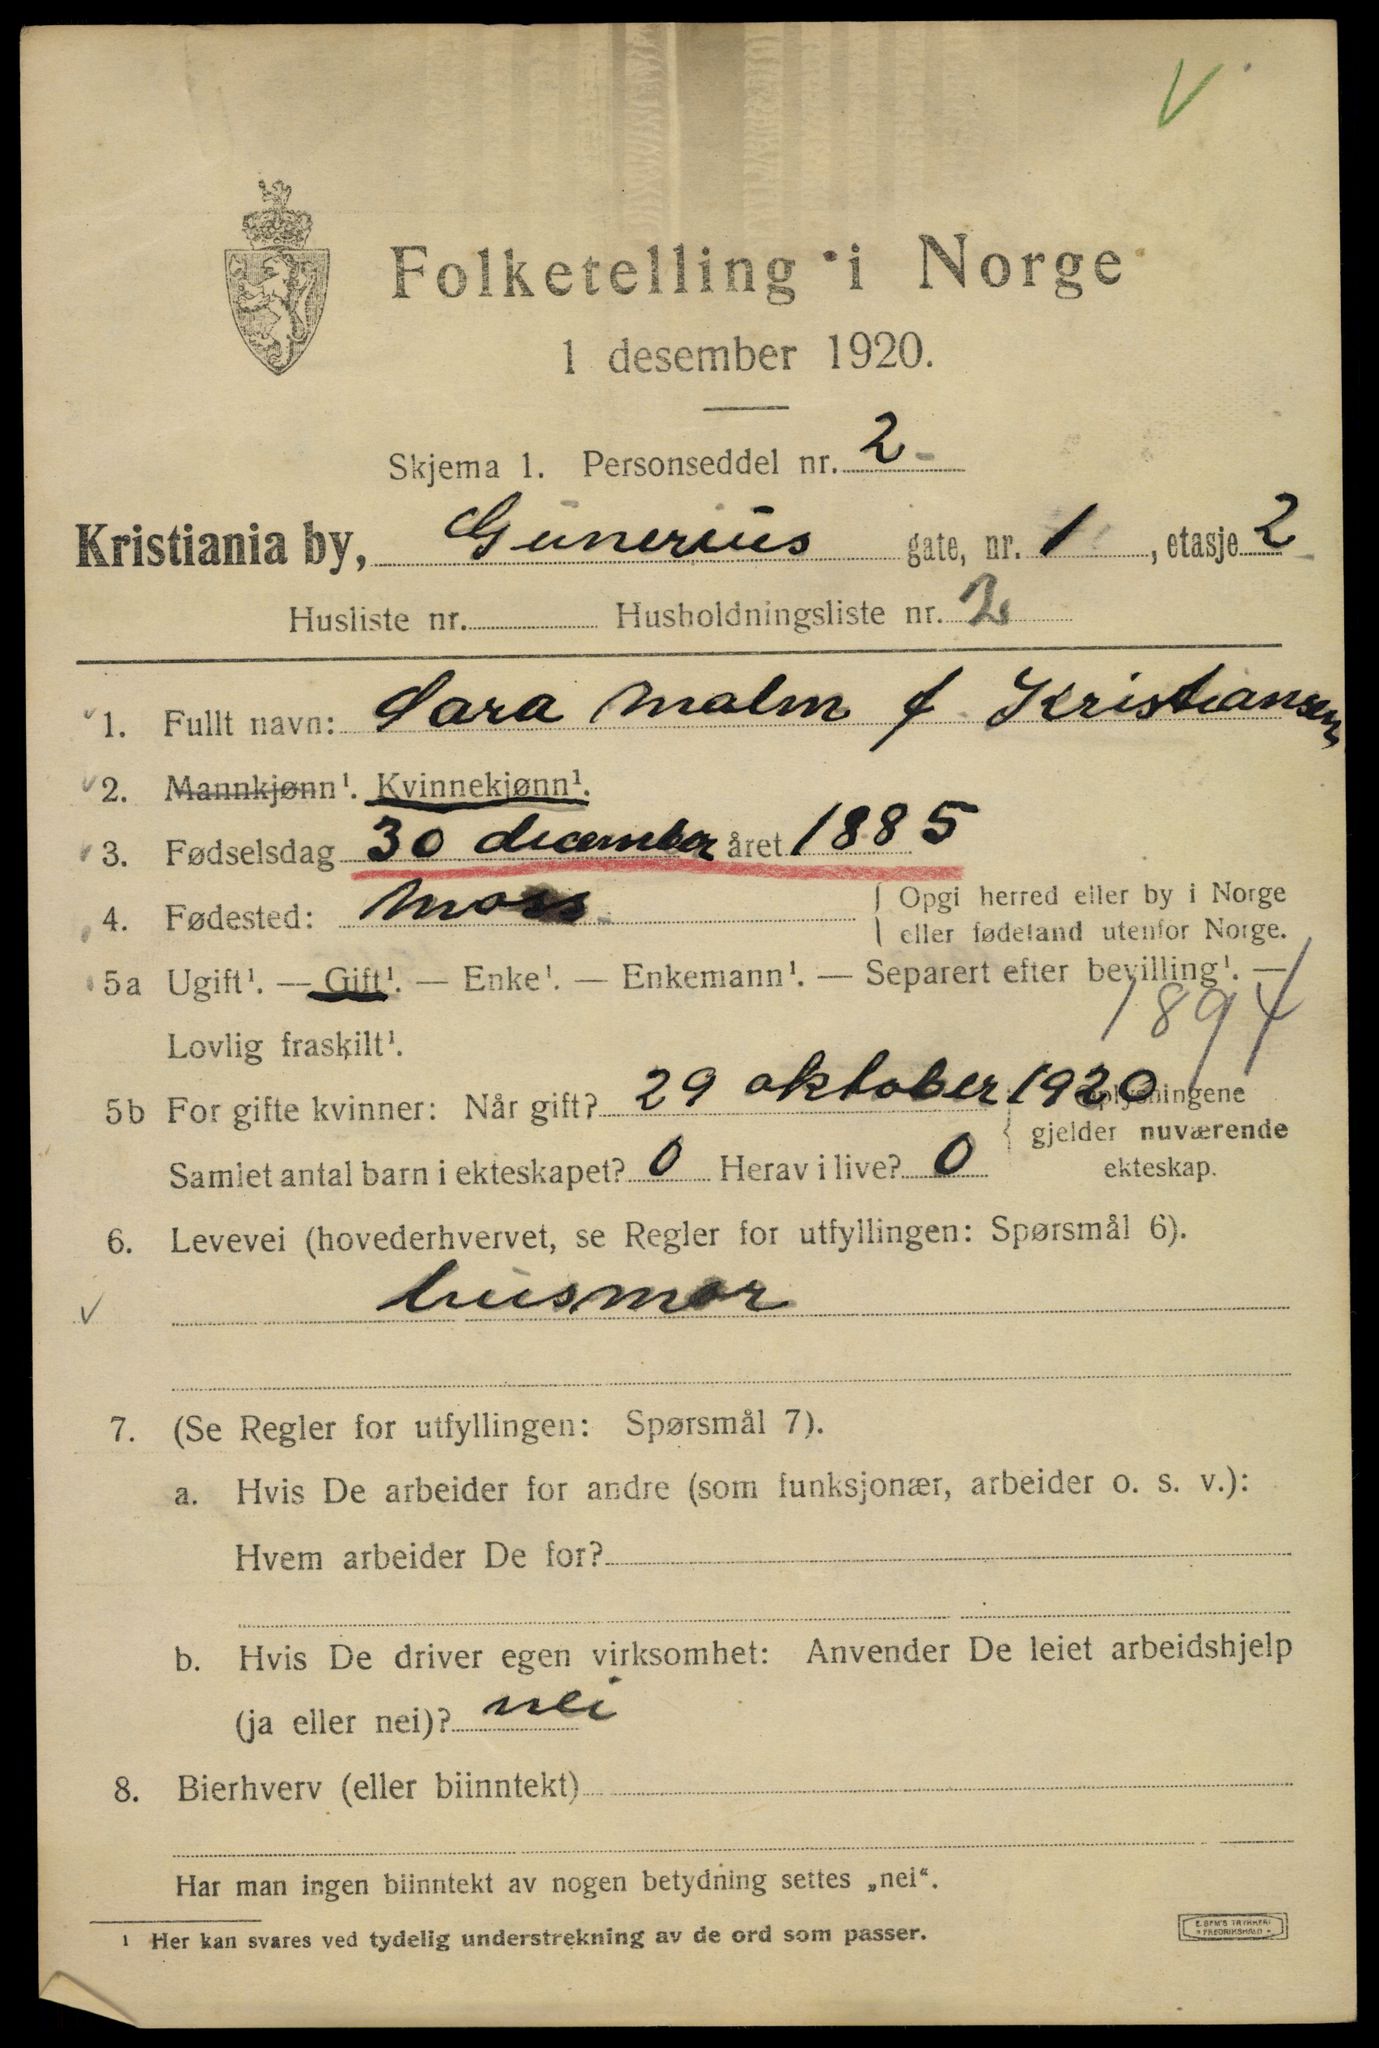 V
Folketelling i Norge
1 desember 1920.
Skjema 1. Personseddel nr. 2
Kristiania by, Gunerius gate, nr. 1, etasje 2
Husliste nr. Husholdningsliste nr. 2
1. Fullt navn: Sara Malm f Kristiansen
2. Mannkjønn¹. Kvinnekjønn¹.
3. Fødselsdag 30 december året 1885
4. Fødested: Moss Opgi herred eller by i Norge
eller fødeland utenfor Norge.
5a Ugift¹. — Gift¹. — Enke¹. — Enkemann¹. — Separert efter bevilling¹. —
1894
Lovlig fraskilt¹.
5b For gifte kvinner: Når gift? 29 oktober 1920 plysningene
gjelder nuværende
Samlet antal barn i ekteskapet? 0 Herav i live? 0 ekteskap.
6. Levevei (hovederhvervet, se Regler for utfyllingen: Spørsmål 6).
V husmor
7. (Se Regler for utfyllingen: Spørsmål 7).
a. Hvis De arbeider for andre (som funksjonær, arbeider o. s. v.):
Hvem arbeider De for?
b. Hvis De driver egen virksomhet: Anvender De leiet arbeidshjelp
(ja eller nei)? nei
8. Bierhverv (eller biinntekt)
Har man ingen biinntekt av nogen betydning settes „nei“.
¹ Her kan svares ved tydelig understrekning av de ord som passer.
E. SEM'S TRYKKERI
FREDRIKSHALD